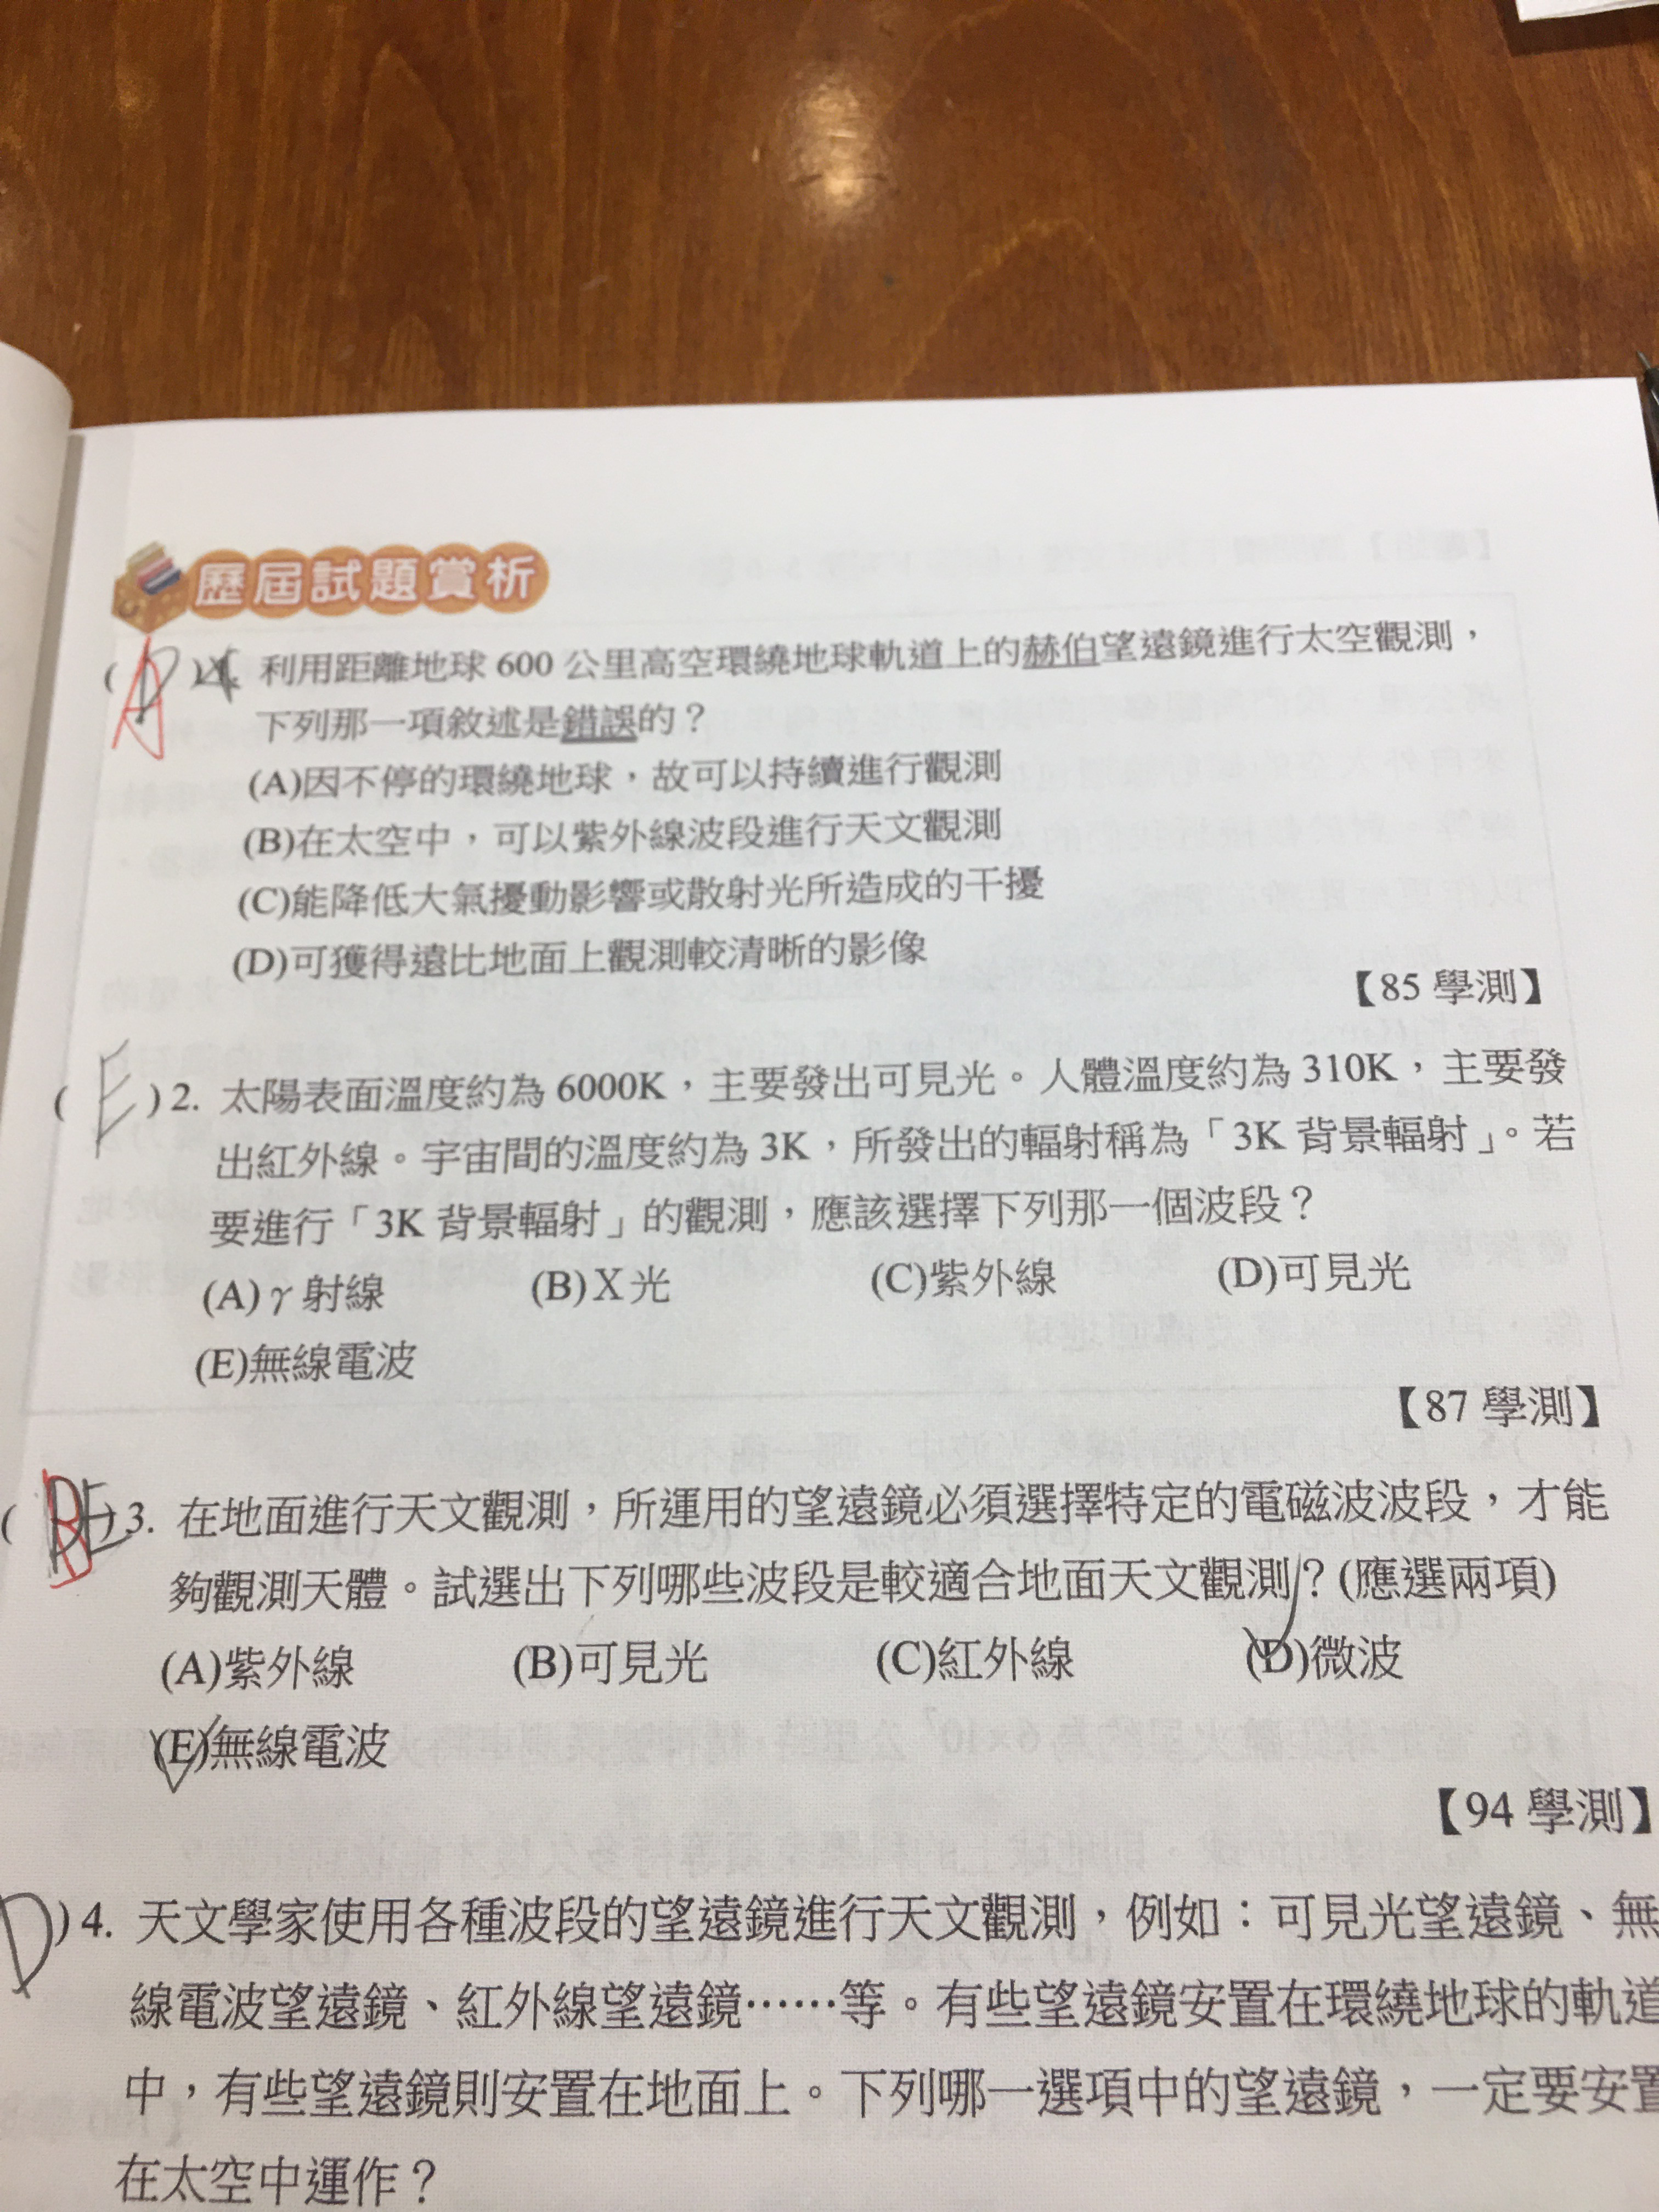 歷屆試題賞析
(D)1. 利用距離地球 600 公里高空環繞地球軌道上的赫伯望遠鏡進行太空觀測，
A
下列那一項敘述是錯誤的？
(A)因不停的環繞地球，故可以持續進行觀測
(B)在太空中，可以紫外線波段進行天文觀測
(C)能降低大氣擾動影響或散射光所造成的干擾
(D)可獲得遠比地面上觀測較清晰的影像
【85 學測】
(E)2. 太陽表面溫度約為 6000K，主要發出可見光。人體溫度約為 310K，主要發
出紅外線。宇宙間的溫度約為 3K，所發出的輻射稱為「3K 背景輻射」。若
要進行「3K 背景輻射」的觀測，應該選擇下列那一個波段？
(A)γ射線 (B)X光 (C)紫外線 (D)可見光
(E)無線電波
【87 學測】
(BE)3. 在地面進行天文觀測，所運用的望遠鏡必須選擇特定的電磁波波段，才能
夠觀測天體。試選出下列哪些波段是較適合地面天文觀測？(應選兩項)
(A)紫外線 (B)可見光 (C)紅外線 (D)微波
(E)無線電波
【94 學測】
D)4. 天文學家使用各種波段的望遠鏡進行天文觀測，例如：可見光望遠鏡、無
線電波望遠鏡、紅外線望遠鏡……等。有些望遠鏡安置在環繞地球的軌道
中，有些望遠鏡則安置在地面上。下列哪一選項中的望遠鏡，一定要安置
在太空中運作？